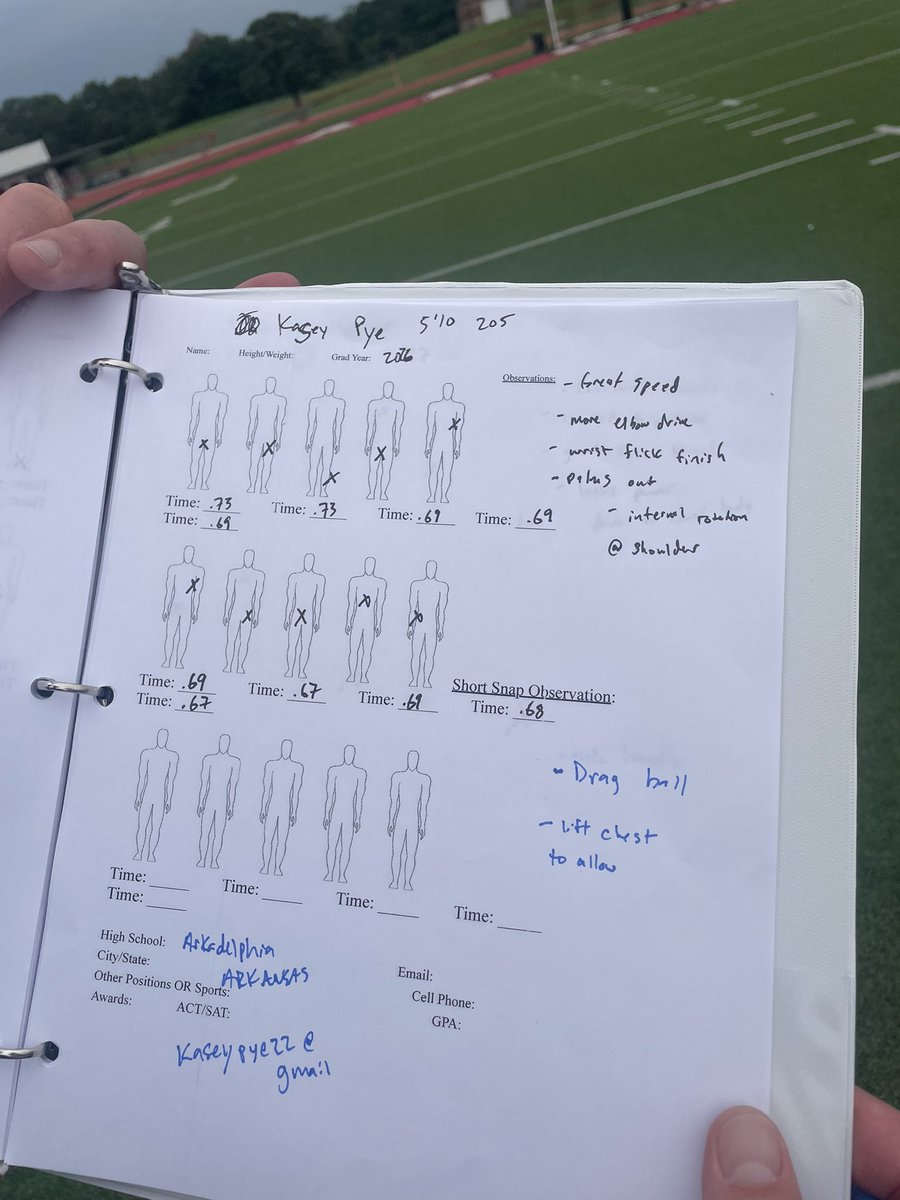 Kasey Pye 5'10 205
Name: Height/Weight: Grad Year: 2026
Observations: - Great speed
- more elbow drive
- wrist flick finish
- palms out
- internal rotation
@ shoulder
Time: .73 Time: .73 Time: .69 Time: .69
Time: .69
Time: .69 Time: .67 Time: .69 Short Snap Observation:
Time: .67 Time: .68
- Drag ball
- Lift chest
to allow
Time: ____ Time: ____ Time: ____ Time: ____
Time: ____
High School: Arkadelphia
City/State: ARKANSAS
Other Positions OR Sports:
Awards: ACT/SAT:
Email:
Cell Phone:
GPA:
Kaseypye22@
gmail